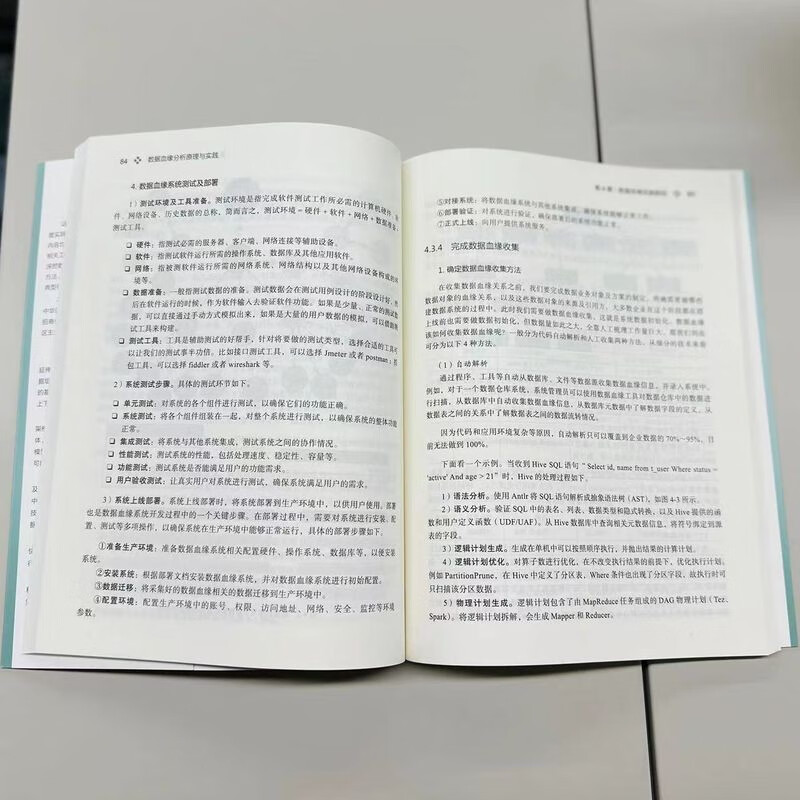 84 数据血缘分析原理与实践
4. 数据血缘系统测试及部署
1）测试环境及工具准备。测试环境是指完成软件测试工作所必需的计算机硬件、软
件、网络设备、历史数据的总称，简而言之，测试环境 = 硬件 + 软件 + 网络 + 数据准备 +
测试工具。
❑ 硬件：指测试必需的服务器、客户端、网络连接等辅助设备。
❑ 软件：指测试软件运行所需的操作系统、数据库及其他应用软件。
❑ 网络：指被测软件运行所需的网络系统、网络结构以及其他网络设备构成的环
境等。
❑ 数据准备：一般指测试数据的准备。测试数据会在测试用例设计的阶段设计好，然
后在软件运行的时候，作为软件输入去验证软件功能。如果是少量、正常的测试数
据，可以直接通过手动方式模拟出来，如果是大量的用户数据的模拟，可以借助测
试工具来构建。
❑ 测试工具：工具是辅助测试的好帮手，针对将要做的测试类型，选择合适的工具可
以让我们的测试事半功倍。比如接口测试工具，可以选择 Jmeter 或者 postman；抓
包工具，可以选择 fiddler 或者 wireshark 等。
2）系统测试步骤。具体的测试环节如下。
❑ 单元测试：对系统的各个组件进行测试，以确保它们的功能正确。
❑ 系统测试：将各个组件组装在一起，对整个系统进行测试，以确保系统的整体功能
正常。
❑ 集成测试：将系统与其他系统集成，测试系统之间的协作情况。
❑ 性能测试：测试系统的性能，包括处理速度、稳定性、容量等。
❑ 功能测试：测试系统是否能满足用户的功能需求。
❑ 用户验收测试：让真实用户对系统进行测试，确保系统满足用户的需求。
3）系统上线部署。系统上线部署时，将系统部署到生产环境中，以供用户使用。部署
也是数据血缘系统开发过程中的一个关键步骤。在部署过程中，需要对系统进行安装、配
置、测试等多项操作，以确保系统在生产环境中能够正常运行，具体的部署步骤如下。
①准备生产环境：准备数据血缘系统相关配置硬件、操作系统、数据库等，以便安装
系统。
②安装系统：根据部署文档安装数据血缘系统，并对数据血缘系统进行初始配置。
③数据迁移：将采集好的数据血缘相关的数据迁移到生产环境中。
④配置环境：配置生产环境中的账号、权限、访问地址、网络、安全、监控等环境
参数。
⑤对接系统：将数据血缘系统与其他系统集成，确保系统能够正常工作。
⑥部署验证：对系统进行验证，确保部署后的系统功能正常。
⑦正式上线：向用户提供系统服务。
4.3.4 完成数据血缘收集
1. 确定数据血缘收集方法
在收集数据血缘关系之前，我们要完成数据业务对象及方案的制定，明确需要哪些
数据对象的血缘关系，以及这些数据对象的来源及引用方，大多数企业在这个阶段都在
建数据系统的过程中，此时我们需要做数据血缘收集，这就是系统数据初始化。数据血缘
上线前也需要做数据初始化，但数据量如此之大，全靠人工梳理工作量巨大，那我们到底
该如何收集数据血缘呢？一般分为代码自动解析和人工收集两种方法，从细分的技术来看
可分为以下 4 种方法。
（1）自动解析
通过程序、工具等自动从数据库、文件等数据源收集数据血缘信息，并录入系统中。
例如，对于一个数据仓库系统，系统管理员可以使用数据血缘工具对数据仓库中的数据进
行扫描，从数据库中自动收集数据血缘信息，从数据库元数据中了解数据字段的定义，从
数据表之间的关系中了解数据表之间的数据流转情况。
因为代码和应用环境复杂等原因，自动解析只可以覆盖到企业数据的 70%~95%，目
前无法做到 100%。
下面看一个示例。当收到 Hive SQL 语句 " Select id, name from t_user Where status =
'active' And age > 21" 时，Hive 的处理过程如下。
1）语法分析。使用 Antlr 将 SQL 语句解析成抽象语法树（AST），如图 4-3 所示。
2）语义分析。验证 SQL 中的表名、列表、数据类型和隐式转换，以及 Hive 提供的函
函数和用户定义函数（UDF/UAF）。从 Hive 数据库中查询相关元数据信息，将符号绑定到源
表的字段。
3）逻辑计划生成。生成在单机中可以按照顺序执行，并抛出结果的计算计划。
4）逻辑计划优化。对算子数进行优化，在不改变执行结果的前提下，优化执行计划。
例如 PartitionPrune，在 Hive 中定义了分区表，Where 条件也出现了分区字段，故执行时可
只扫描该分区数据。
5）物理计划生成。逻辑计划包含了由 MapReduce 任务组成的 DAG 物理计划（Tez、
Spark）。将逻辑计划拆解，会生成 Mapper 和 Reducer。